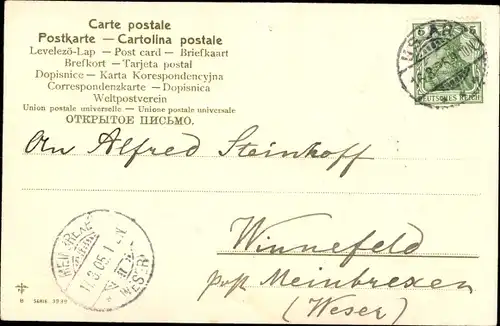 Carte postale
Postkarte — Cartolina postale
Levelező-Lap — Post card — Briefkaart
Brefkort — Tarjeta postal
Dopisnice — Karta Korespondencyjna
Correspondenzkarte — Dopisnica
Weltpostverein
Union postale universelle — Unione postale universale
ОТКРЫТОЕ ПИСЬМО.
5 5
DEUTSCHES REICH
An Alfred Steinkoff
Winnefeld
post Meinbrexen
(Weser)
05.1
WESER
SERIE